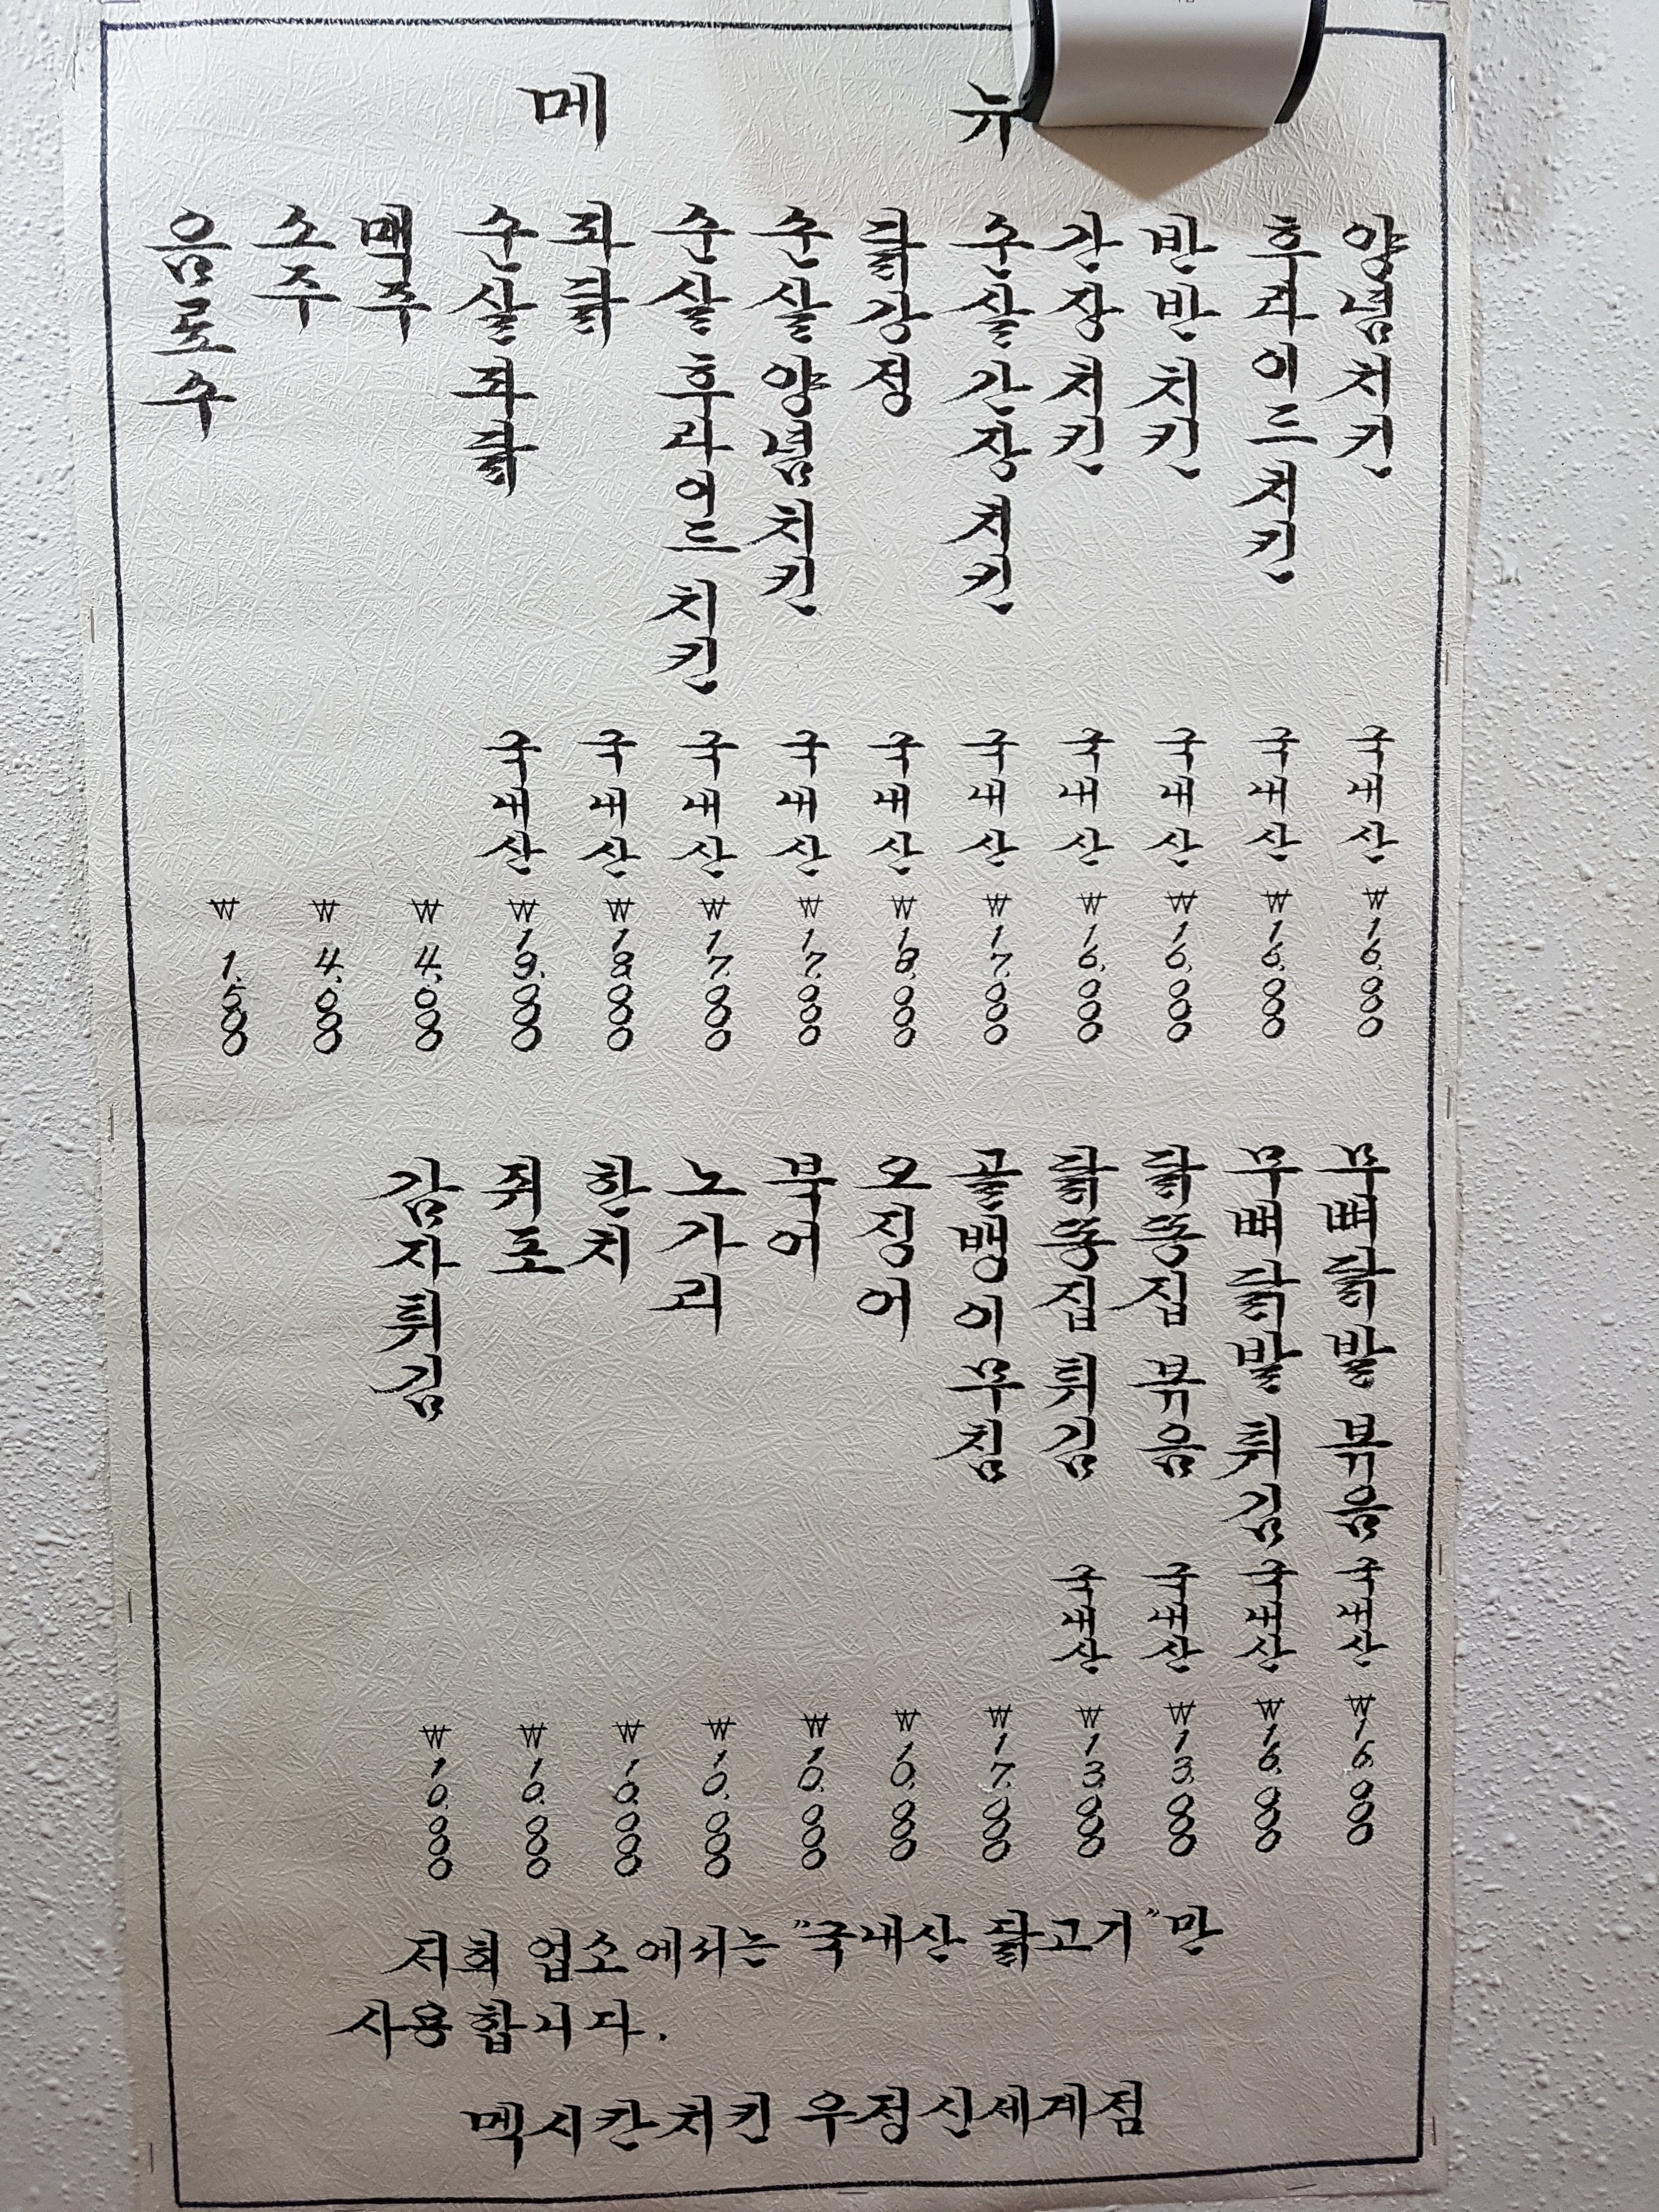 메뉴
양념치킨 국내산 ₩16,000
후라이드치킨 국내산 ₩16,000
반반치킨 국내산 ₩16,000
간장치킨 국내산 ₩16,000
순살간장치킨 국내산 ₩17,000
닭강정 국내산 ₩18,000
순살양념치킨 국내산 ₩17,000
순살후라이드치킨 국내산 ₩17,000
파닭 국내산 ₩18,000
순살파닭 국내산 ₩19,000
맥주 ₩4,000
소주 ₩4,000
음료수 ₩1,500
무뼈닭발 볶음 국내산 ₩16,000
무뼈닭발 튀김 국내산 ₩16,000
닭똥집 볶음 국내산 ₩13,000
닭똥집 튀김 국내산 ₩13,000
골뱅이무침 ₩17,000
오징어 ₩10,000
북어 ₩10,000
노가리 ₩10,000
한치 ₩10,000
쥐포 ₩10,000
감자튀김 ₩10,000
저희 업소에서는 "국내산 닭고기"만
사용합니다.
멕시칸치킨 우정신세계점